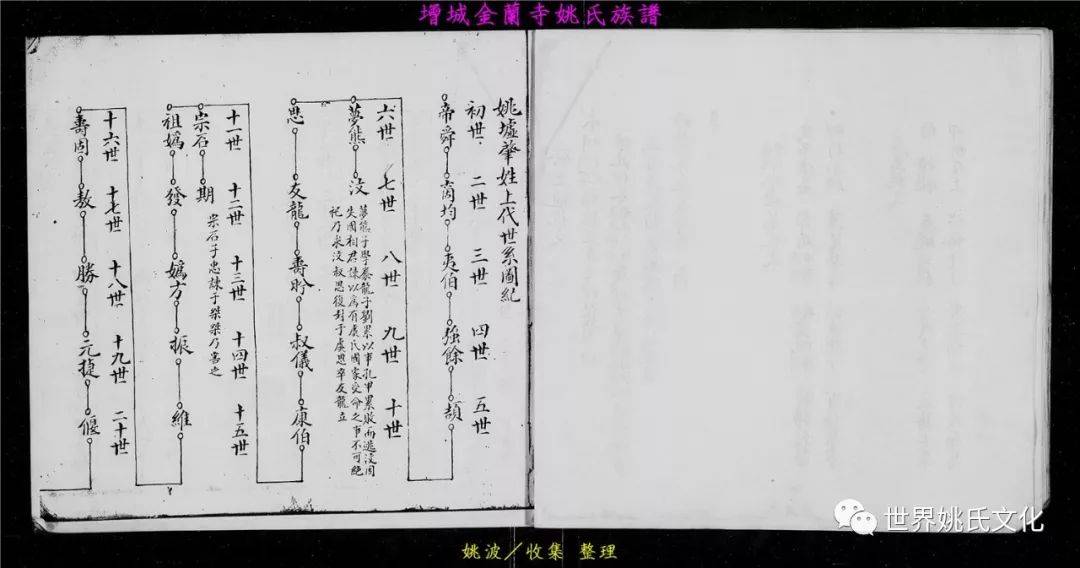 增城金蘭寺姚氏族譜
姚墟肇姓上代世系圖紀
初世 二世 三世 四世 五世
帝舜 商均 夷伯 強餘 頡
六世 七世 八世 九世 十世
夢熊 汶
夢熊子學養龍子劉累以事孔甲累敗而逃汶因
失國相君僳以為有虞氏國家受命之事不可絕
祀乃求汶叔思復封于虞思卒友龍立
思 友龍 壽昤 叔儀 康伯
十一世 十二世 十三世 十四世 十五世
宗石 期
宗石子忠諫于桀桀乃害之
祖嬀 發 嬀方 振 維
十六世 十七世 十八世 十九世 二十世
壽固 敖 勝 元捷 偃
世界姚氏文化
姚波／收集 整理